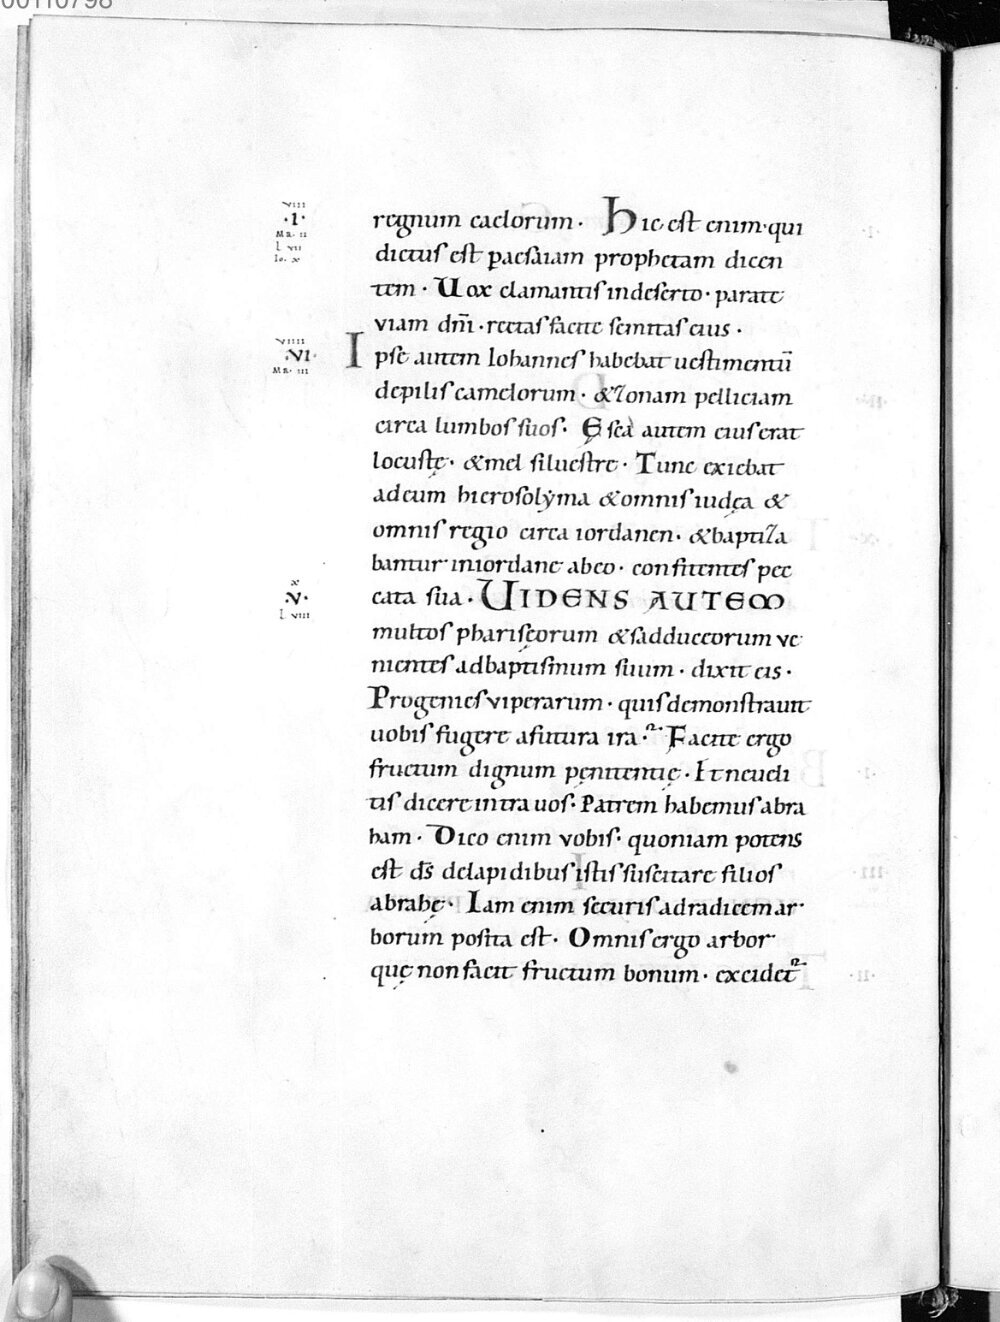 00110798
VIII
·I·
MR· II
L VII
Io· X
regnum caelorum · Hic est enim · qui
dictus est p aesaiam prophetam dicen
tem · Uox clamantis indeserto · parate
viam dñi · rectas facite semitas eius ·
VIIII
·VI·
MR· III
Ipse autem Iohannes habebat uestimentū
depilis camelorum · & zonam pelliciam
circa lumbos suos · Esca autem eius erat
locustę · & mel siluestre · Tunc exiebat
adeum hierosolẏma & omnis iudęa &
omnis regio circa iordanen · & baptiza
bantur iniordane abeo · confitentes pec
X
·V·
L VIII
cata sua · UIDENS AUTEM
multos pharisęorum & sadduceorum ve
nientes adbaptismum suum · dixit eis ·
Progenies viperarum · quis demonstrauit
uobis fugere afutura ira · Facite ergo
fructum dignum pęnitentię · Et neueli
tis dicere intra uos · Patrem habemus abra
ham · Dico enim vobis · quoniam potens
est d̄s delapidibus istis suscitare filios
abrahę · Iam enim securis adradicem ar
borum posita est · Omnis ergo arbor
quę non facit fructum bonum · excidet᷑